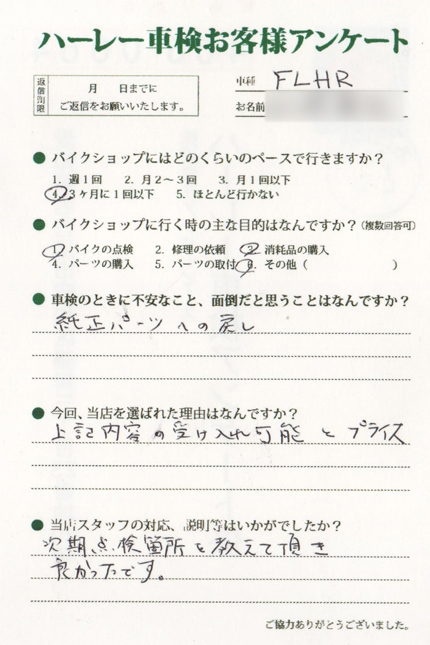 ハーレー車検お客様アンケート
返信期限
月　日までに
ご返信をお願いいたします。
車種 FLHR
お名前
● バイクショップにはどのくらいのペースで行きますか？
1. 週1回　2. 月2～3回　3. 月1回以下
4. 3ヶ月に1回以下　5. ほとんど行かない
● バイクショップに行く時の主な目的はなんですか？（複数回答可）
1. バイクの点検　2. 修理の依頼　3. 消耗品の購入
4. パーツの購入　5. パーツの取付　6. その他（　　　　）
● 車検のときに不安なこと、面倒だと思うことはなんですか？
純正パーツへの戻し
● 今回、当店を選ばれた理由はなんですか？
上記内容の受け入れ可能とプライス
● 当店スタッフの対応、説明等はいかがでしたか？
次期点検箇所を教えて頂き
良かったです。
ご協力ありがとうございました。